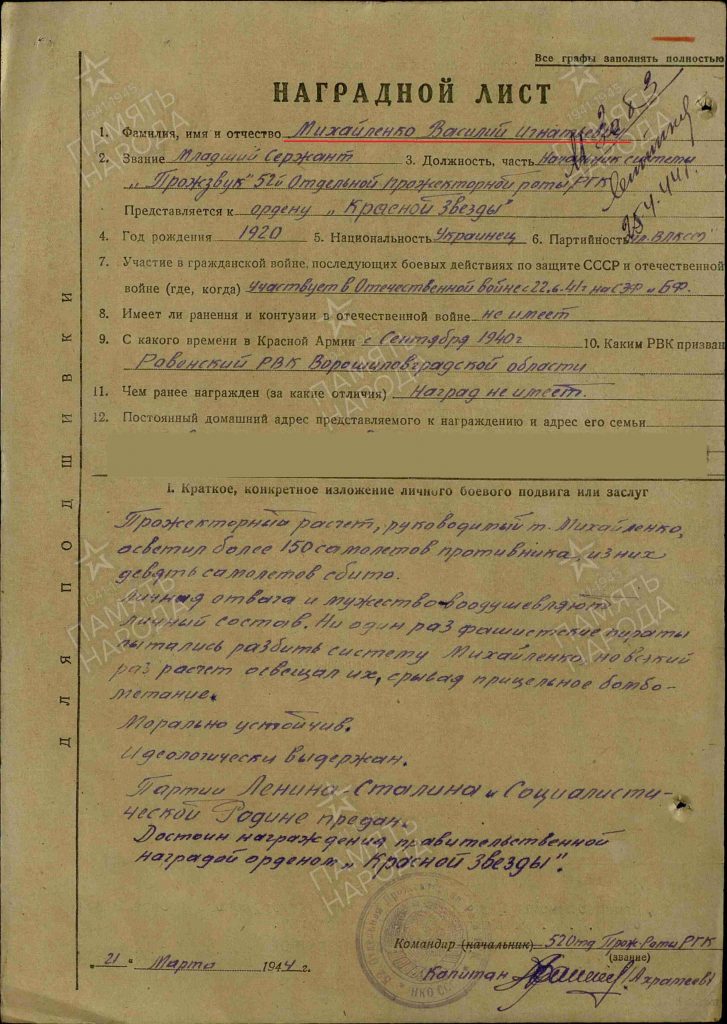 Все графы заполнять полностью
НАГРАДНОЙ ЛИСТ
1. Фамилия, имя и отчество Михайленко Василий Игнатьевич
2. Звание Младший Сержант 3. Должность, часть Начальник системы
"Прожзвук" 52й Отдельной прожекторной роты РГК
Представляется к ордену "Красной Звезды"
4. Год рождения 1920 5. Национальность Украинец 6. Партийность чл. ВЛКСМ
7. Участие в гражданской войне, последующих боевых действиях по защите СССР и отечественной
войне (где, когда) Участвует в Отечественной войне с 22.6.41г на СЗФ и БФ.
8. Имеет ли ранения и контузии в отечественной войне не имеет
9. С какого времени в Красной Армии с Сентября 1940г 10. Каким РВК призван
Ровенский РВК Ворошиловградской области
11. Чем ранее награжден (за какие отличия) Наград не имеет.
12. Постоянный домашний адрес представляемого к награждению и адрес его семьи
I. Краткое, конкретное изложение личного боевого подвига или заслуг
Прожекторный расчет, руководимый т. Михайленко,
осветил более 150 самолетов противника, из них
девять самолетов сбито.
Личная отвага и мужество воодушевляют
личный состав. Ни один раз фашистские пираты
пытались разбить систему Михайленко, но всякий
раз расчет освещал их, срывая прицельное бомбо-
метание.
Морально устойчив.
Идеологически выдержан.
Партии Ленина-Сталина и Социалисти-
ческой Родине предан.
Достоин награждения правительственной
наградой орденом "Красной Звезды".
Командир (начальник) 52 Отд Прож. Роты РГК
(звание)
"21" Марта 1944 г.
Капитан /Ахраменко/
ДЛЯ ПОДШИВКИ
25.4.44г.
1941 1945
ПАМЯТЬ
НАРОДА